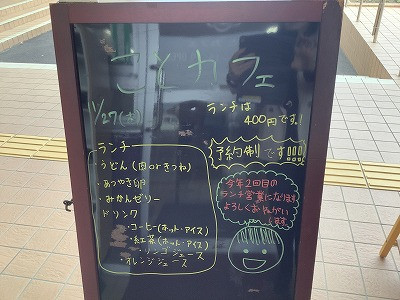 ことカフェ
11/27(水)
ランチは
400円です!
ランチ
・うどん(肉orきつね)
・あつやき卵
・みかんゼリー
ドリンク
・コーヒー(ホット・アイス)
・紅茶(ホット・アイス)
・リンゴジュース
・オレンジジュース
予約制です!!!
今年2回目の
ランチ営業になります
よろしくおねがい
します